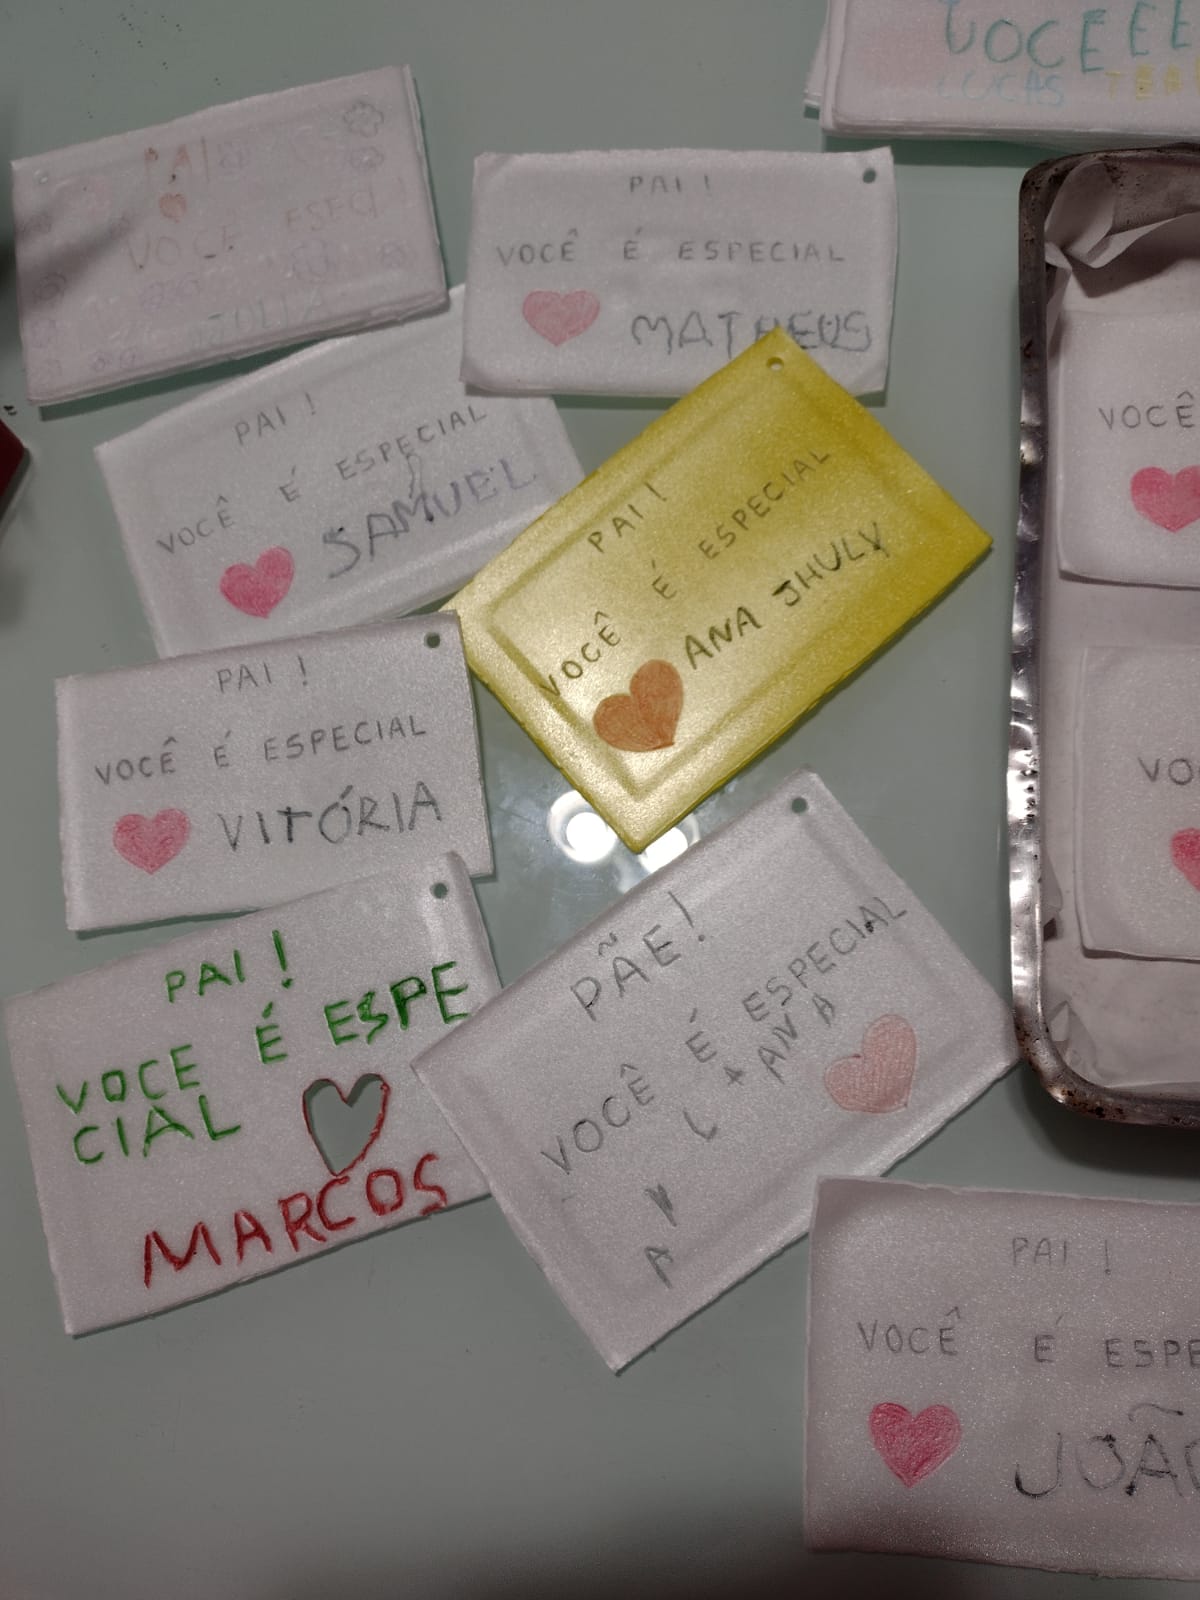 VOCEEE
LUCAS
PAI
VOCE ESPECI
PAI !
VOCÊ É ESPECIAL
MATHEUS
PAI !
VOCÊ É ESPECIAL
SAMUEL
PAI !
VOCÊ É ESPECIAL
ANA JHULY
PAI !
VOCÊ É ESPECIAL
VITÓRIA
PAI !
VOCE É ESPE
CIAL
MARCOS
PÃE!
VOCÊ É ESPECIAL
+ ANA
VOCÊ
VO
PAI !
VOCÊ É ESPE
JOÃO